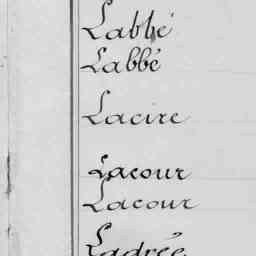 Labbé
Labbé
Lacire
Lacour
Lacour
Ladrée